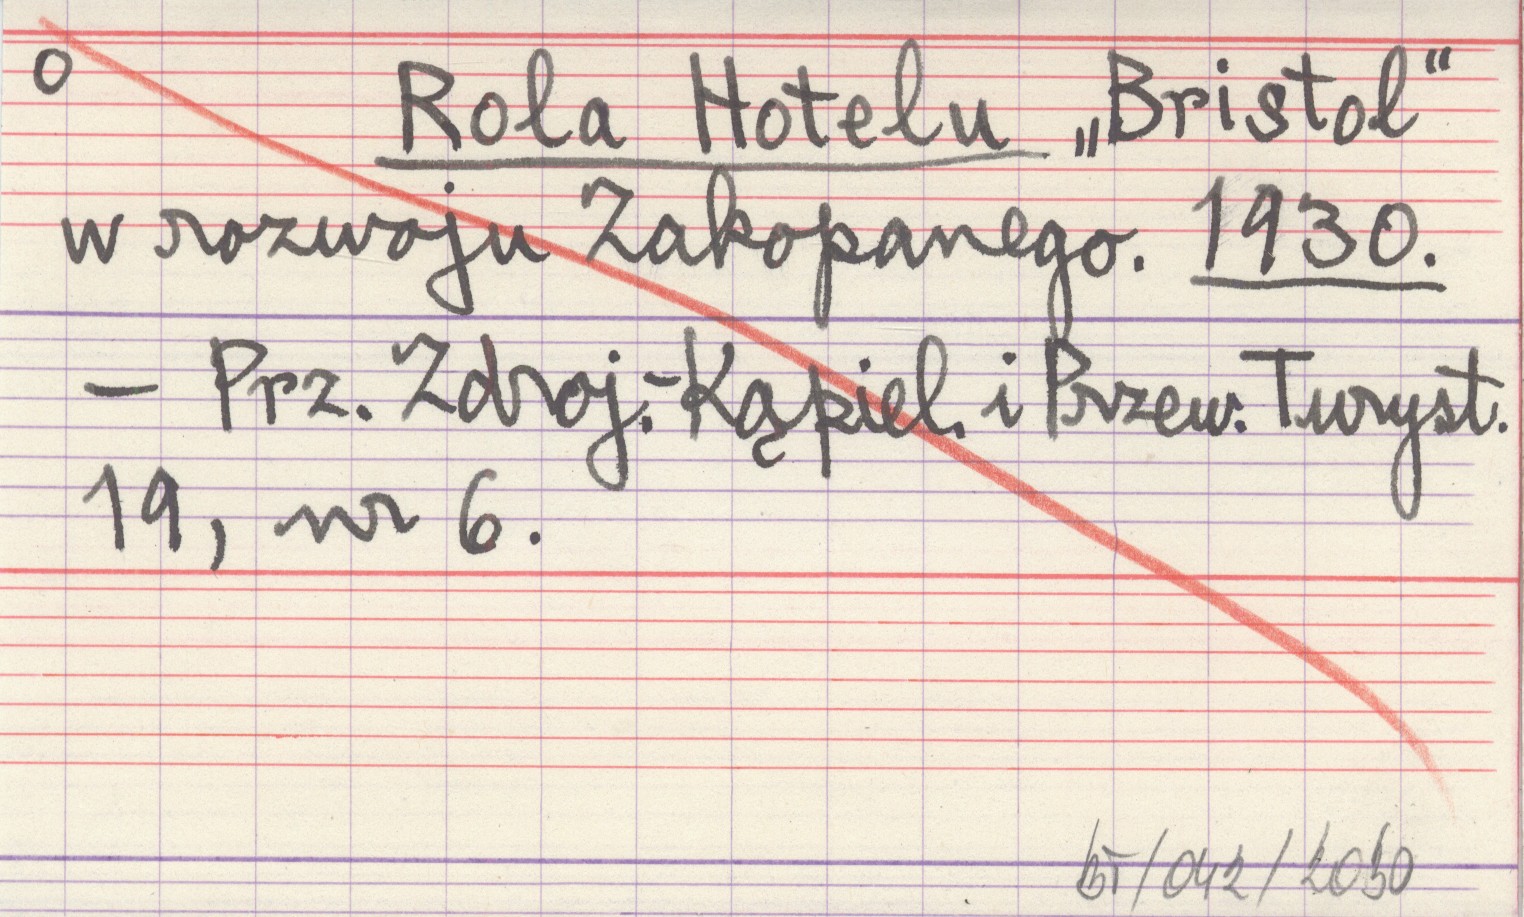 o Rola Hotelu „Bristol“
w rozwoju Zakopanego. 1930.
– Prz. Zdroj.-Kąpiel. i Przew. Turyst.
19, nr 6.